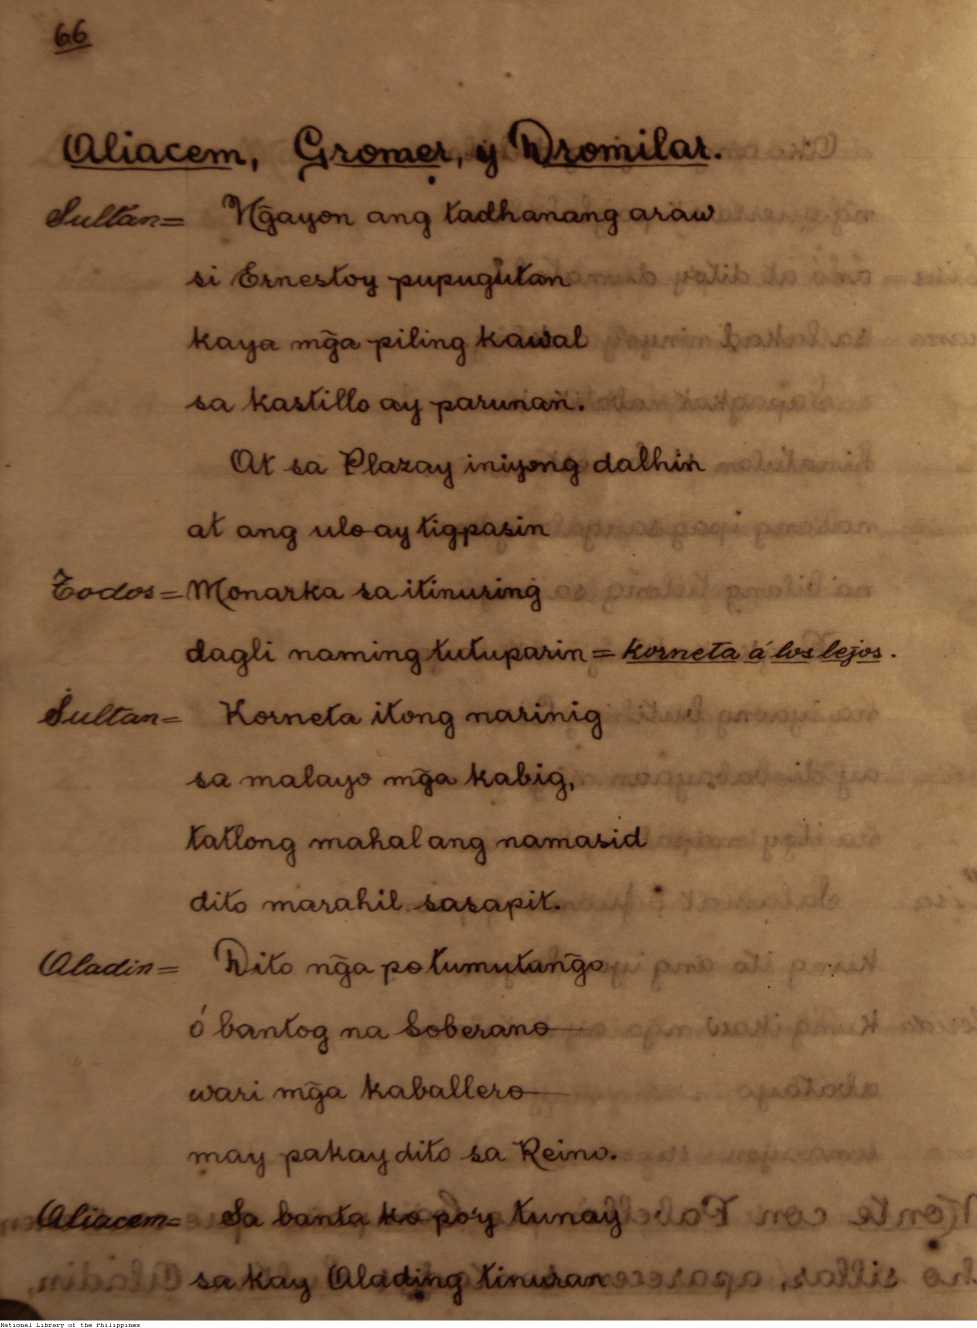 66
Aliacem, Gromer, y Dromilar.
Sultan= Ngayon ang tadhanang araw
si Ernestoy pupugutan
kaya mg̃a piling kawal
sa kastillo ay parunan.
At sa Plazay iniyong dalhin
at ang ulo ay tigpasin
Todos= Monarka sa itinuring
dagli naming tutuparin = korneta á los lejos.
Sultan= Korneta itong narinig
sa malayo mg̃a kabig,
tatlong mahal ang namasid
dito marahil sasapit.
Aladin= Dito ng̃a po tumutung̃o
ó bantog na Soberano
wari mg̃a kaballero
may pakay dito sa Reino.
Aliacem= Sa banta ko po'y tunay
sa kay Alading tinuran
National Library of the Philippines